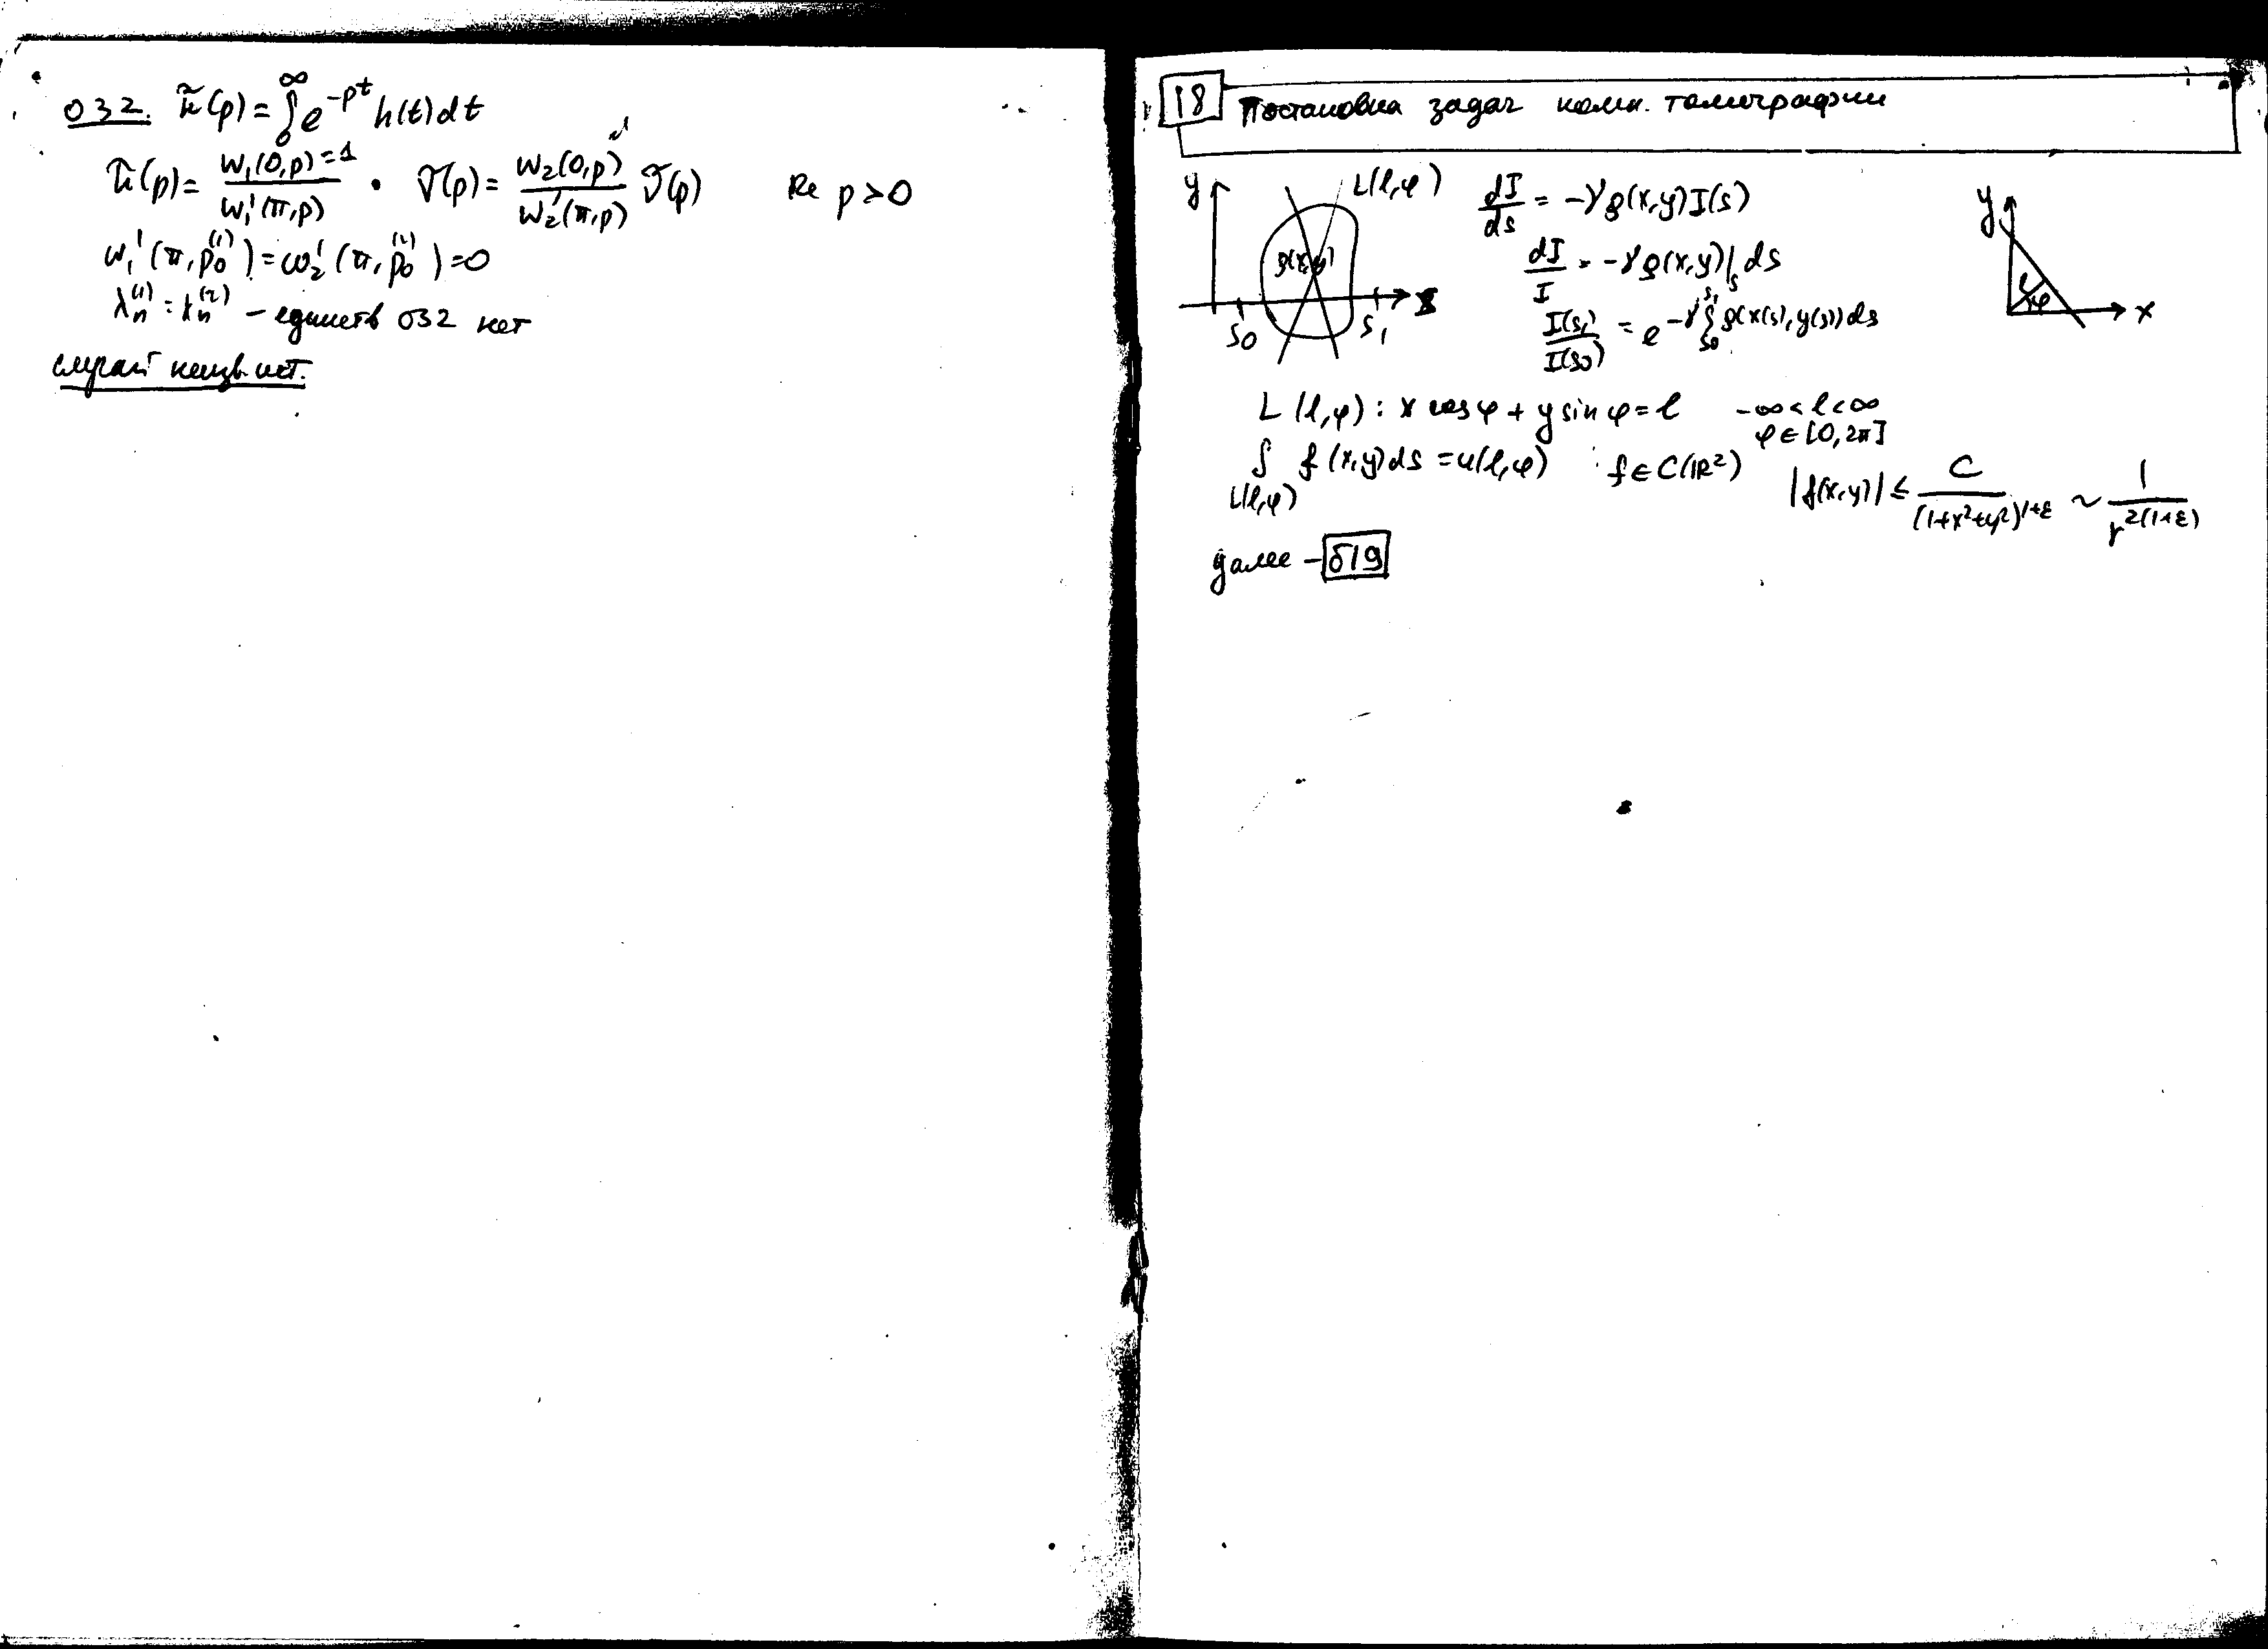 ОЗ2. h̃(p) = ∫₀^∞ e^{-pt} h(t)dt
h̃(p) = w₁(0,p)=1 / w₁'(π,p) · ṽ(p) = w₂(0,p) / w₂'(π,p) ṽ(p) Re p > 0
w₁'(π, p₀⁽¹⁾) = w₂'(π, p₀⁽²⁾) = 0
λₙ⁽¹⁾ = λₙ⁽²⁾ – единств ОЗ2 нет
случай неизв. ист.
18 Постановка задач комп. томографии
y L(l,φ) ρ(x,y) S₀ S₁
dI/ds = -γρ(x,y)I(s)
dI/I = -γρ(x,y)|ₛ ds
I(s₁)/I(s₀) = e^{-γ∫_{s₀}^{s₁} ρ(x(s),y(s))ds}
y l φ x
L(l,φ): x cos φ + y sin φ = l -∞ < l < ∞
φ ∈ [0,2π]
∫_{L(l,φ)} f(x,y)ds = u(l,φ) f ∈ C(ℝ²) |f(x,y)| ≤ C/(1+x²+y²)^{1+ε} ~ 1/r^{2(1+ε)}
далее – б19